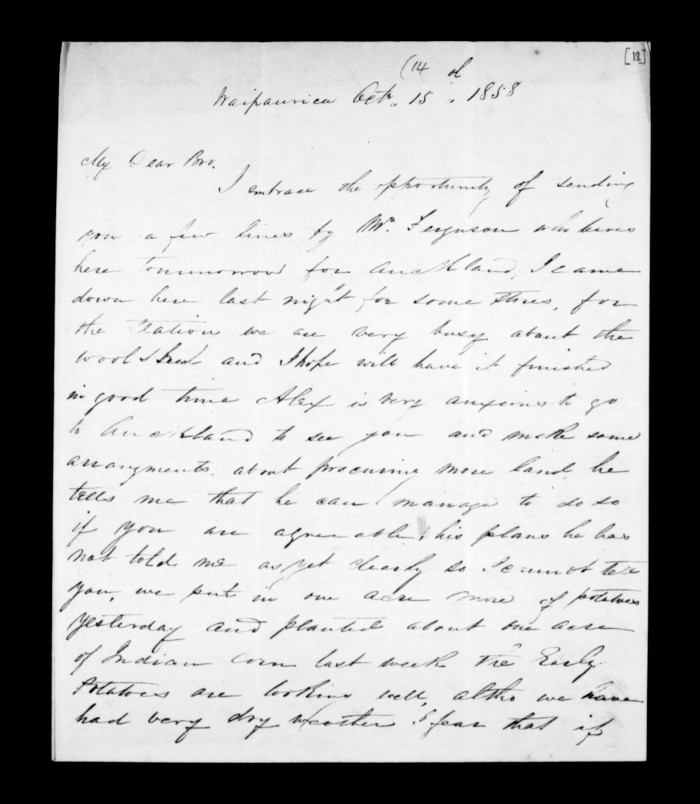 [12]
(14 of
Waipaurica Oct. 15, 1858
My Dear Bro.
I embrace the opportunity of sending
you a few lines by Mr. Ferguson who leaves
here tommorrow for Auckland, I came
down here last night for some stores, for
the Station we are very busy about the
wool Shed and I hope will have it finished
in good time Alex is very anxious to go
to Auckland to see you and make some
arangments about procuring more land he
tells me that he can manage to do so
if you are agreeable, his plans he has
not told me as yet clearly so I cannot tell
you, we put in one acre more of potatoes
yesterday and planted about one acre
of Indian corn last week The Early
Potatoes are looking well, altho we have
had very dry Weather I fear that if